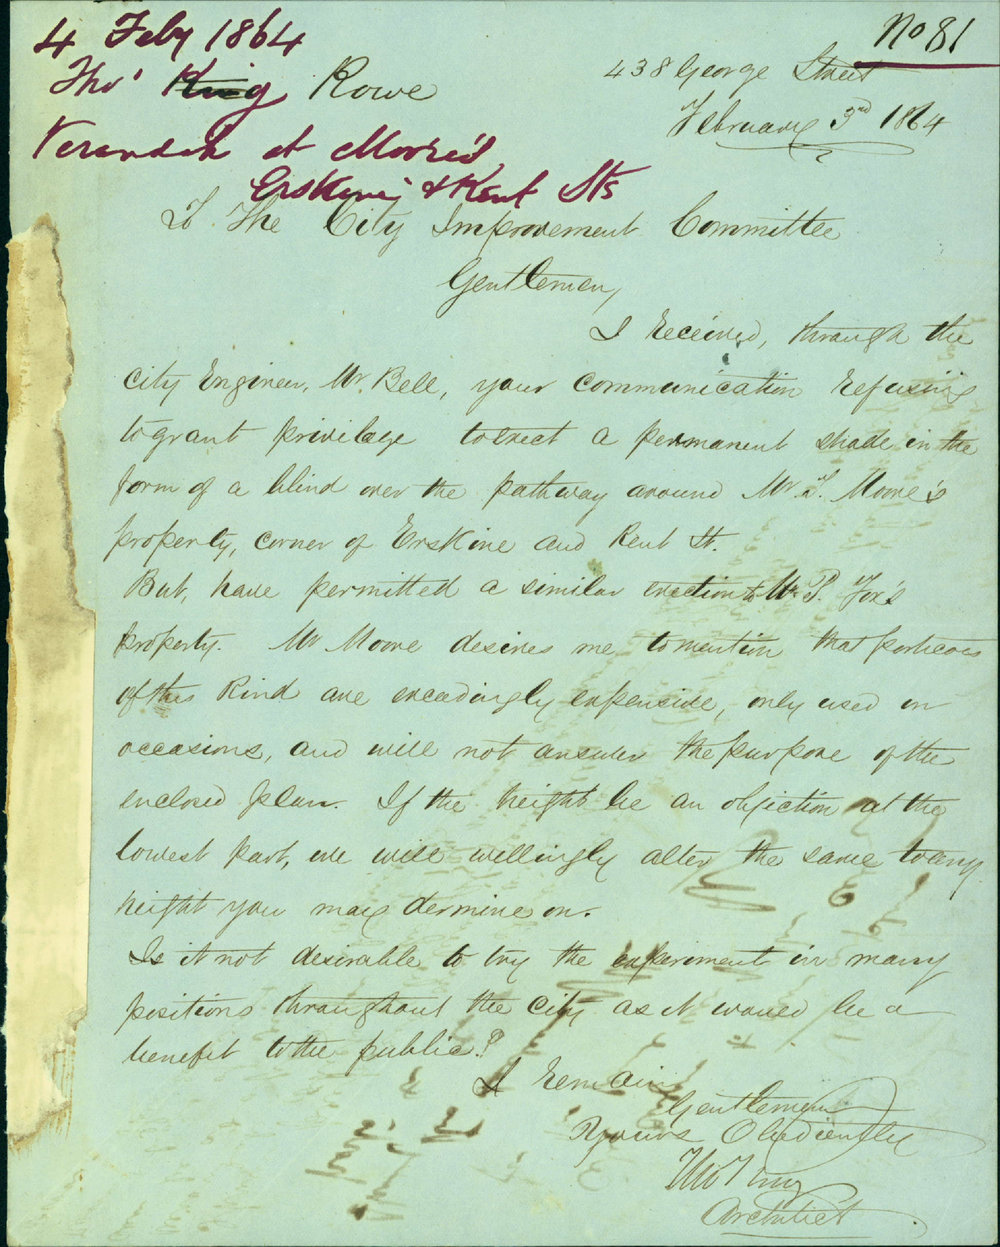 4 Feby 1864
No 81
Thos King Rowe
438 George Street
February 3rd 1864
Verandah at Moore's
Erskine & Kent Sts
To The City Improvement Committee
Gentlemen,
I received, through the
city Engineer, Mr. Bell, your communication refusing
to grant privilage to erect a permanent shade in the
form of a blind over the pathway around Mr. Moore's
property, corner of Erskine and Kent St.
But, have permitted a similar erection to Mr P. Fox's
property. Mr Moore desires me to mention that porticos
of this kind are exceedingly expensive, only used on
occasions, and will not answer the purpose of the
enclosed plan. If the height be an objection at the
lowest part, we will willingly alter the same to any
height you may dermine on.
Is it not desirable to try the experiment in many
positions throughout the city as it would be a
benefit to the public?
I remain
Gentlemen
Yours Obediently
Architect